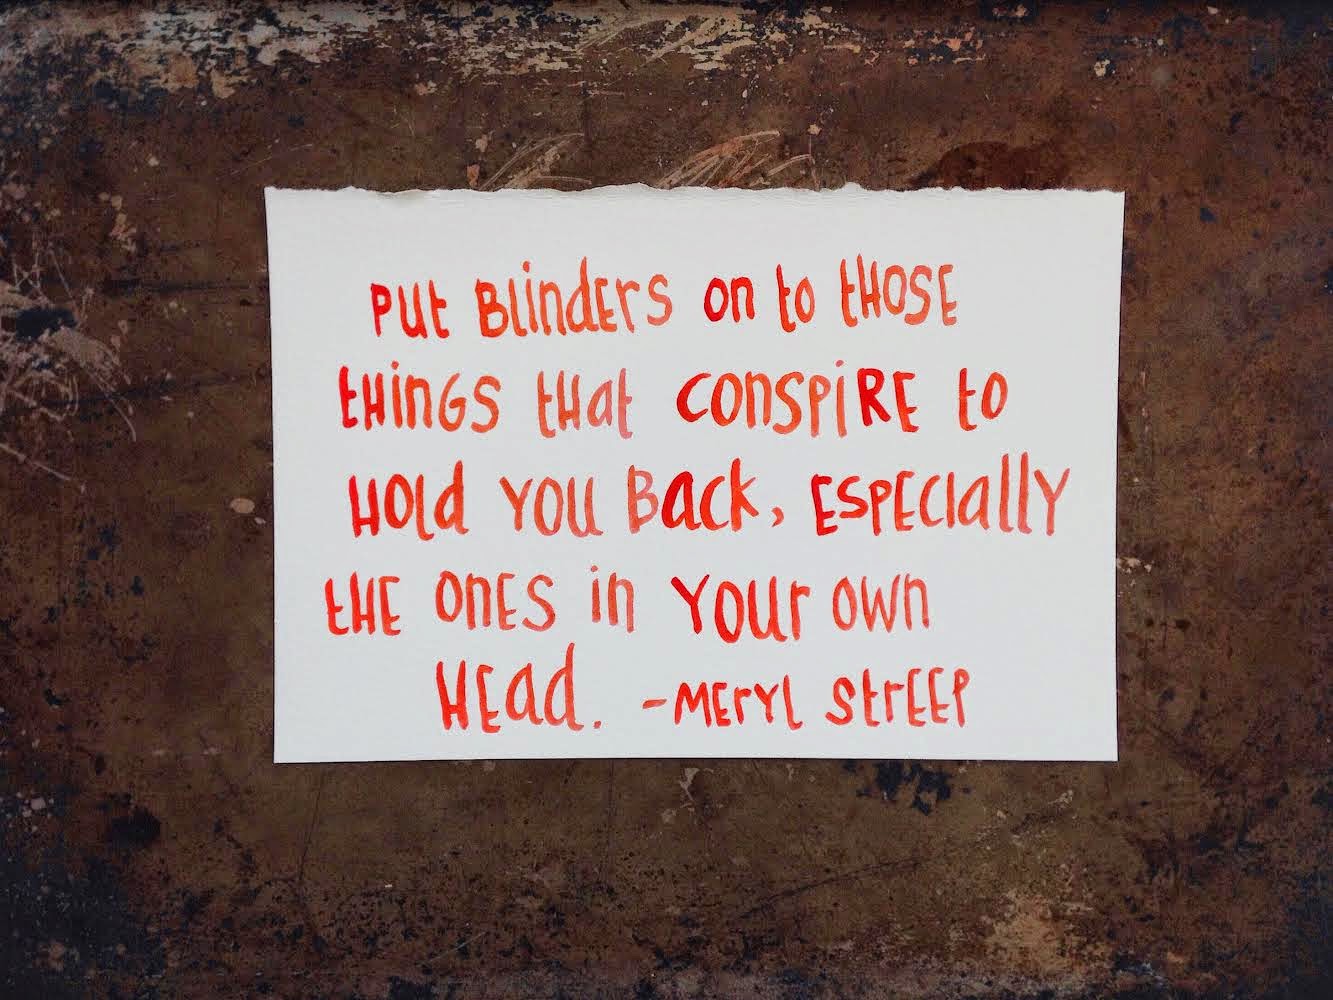 Put Blinders on to those
things that conspire to
Hold you Back, especially
the ones in your own
Head. -Meryl Streep